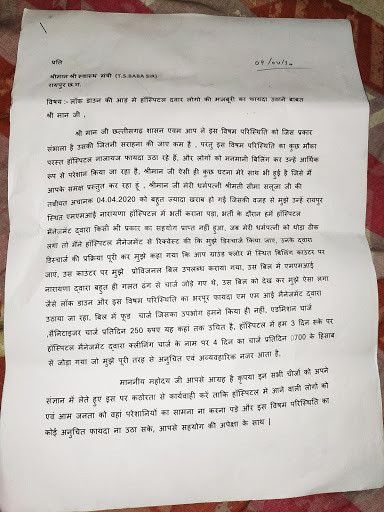 प्रति
श्रीमान श्री स्वास्थ मंत्री (T.S.BABA SIR)
रायपुर छ.ग.
विषय :- लॉक डाउन की आड़ मे हॉस्पिटल दवार लोगो की मजबूरी का फायदा उठाने बाबत
श्री मान जी ,
श्री मान जी छत्तीसगढ़ शासन एवम आप ने इस विषम परिस्थिति को जिस प्रकार
संभाला है उसकी जितनी सराहना की जाए कम है , परंतु इस विषम परिस्थिति का कुछ मौका
परस्त हॉस्पिटल नाजायज फायदा उठा रहे हैं, और लोगों को मनमानी बिलिंग कर उन्हे आर्थिक
रूप से परेशान किया जा रहा है, श्रीमान जी ऐसी ही कुछ घटना मेरे साथ भी हुई है जिसे मैं
आपके समक्ष प्रस्तुत कर रहा हूं , श्रीमान जी मेरी धर्मपत्नी श्रीमती सीमा सलूजा जी की
तबीयत अचानक 04.04.2020 को बहुत ज्यादा खराब हो गई जिसकी वजह से मुझे उन्हे रायपुर
स्थित एमएमआई नारायणा हॉस्पिटल मे भर्ती कराना पड़ा, भर्ती के दौरान हमें हॉस्पिटल
मैनेजमेंट दवारा किसी भी प्रकार का सहयोग प्राप्त नहीं हुआ, जब मेरी धर्मपत्नी को थोड़ा ठीक
लगा तो मैंने हॉस्पिटल मैनेजमेंट से रिक्वेस्ट की कि मुझे डिस्चार्ज किया जाए, उनके दवारा
डिस्चार्ज की प्रक्रिया पूरी कर मुझे कहा गया कि आप ग्राउंड फ्लोर में स्थित बिलिंग काउंटर पर
जाएं, उस काउंटर पर मुझे प्रोविजनल बिल उपलब्ध कराया गया, उस बिल में एमएमआई
नारायणा दवारा बहुत ही गलत ढंग से चार्ज जोड़े गए थे, उस बिल को देख कर मुझे ऐसा लगा
जैसे लॉक डाउन और इस विषम परिस्थिति का भरपूर फायदा एम एम आई मैनेजमेंट दवारा
उठाया जा रहा, बिल में फूड चार्ज जिसका उपभोग हमने किया ही नहीं, एडमिशन चार्ज
,सैनिटाइजर चार्ज प्रतिदिन 250 रुपय यह कहा तक उचित है, हॉस्पिटल में हम 3 दिन रुके पर
हॉस्पिटल मैनेजमेंट दवारा क्लीनिंग चार्ज के नाम पर 4 दिन का चार्ज प्रतिदिन 700 के हिसाब
से जोड़ा गया जो मुझे पूरी तरह से अनुचित एवं अव्यवहारिक नजर आता है.
माननीय महोदय जी आपसे आग्रह है कृपया इन सभी चीजों को अपने
संज्ञान में लेते हुए इस पर कठोरता से कार्यवाही करें ताकि हॉस्पिटल मे आने वाली लोगों को
एवं आम जनता को वहां परेशानियों का सामना ना करना पड़े और इस विषम परिस्थिति का
कोई अनुचित फायदा ना उठा सके, आपसे सहयोग की अपेक्षा के साथ |